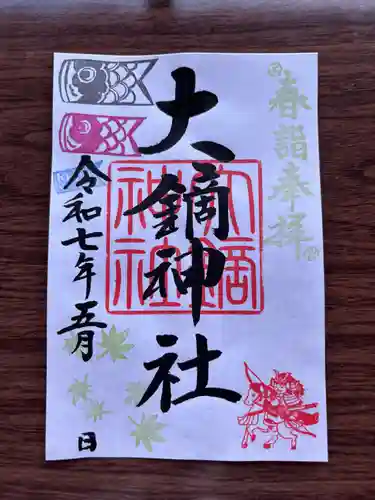 春詣奉拝
大鏑神社
大鏑神社
令和七年五月 日